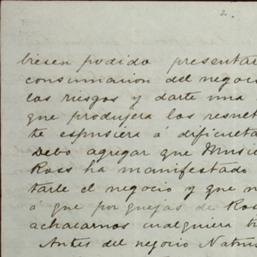 2.
biesen podido presentar
consumacion del negocio
los riesgos y darte una
que produjera los resul
te espusiera á dificulta
Debo agregar que Music
Ross ha manifestado
tarle el negocio y que n
á que por quejas de Ros
achacarnos cualquiera t
Antes del negocio